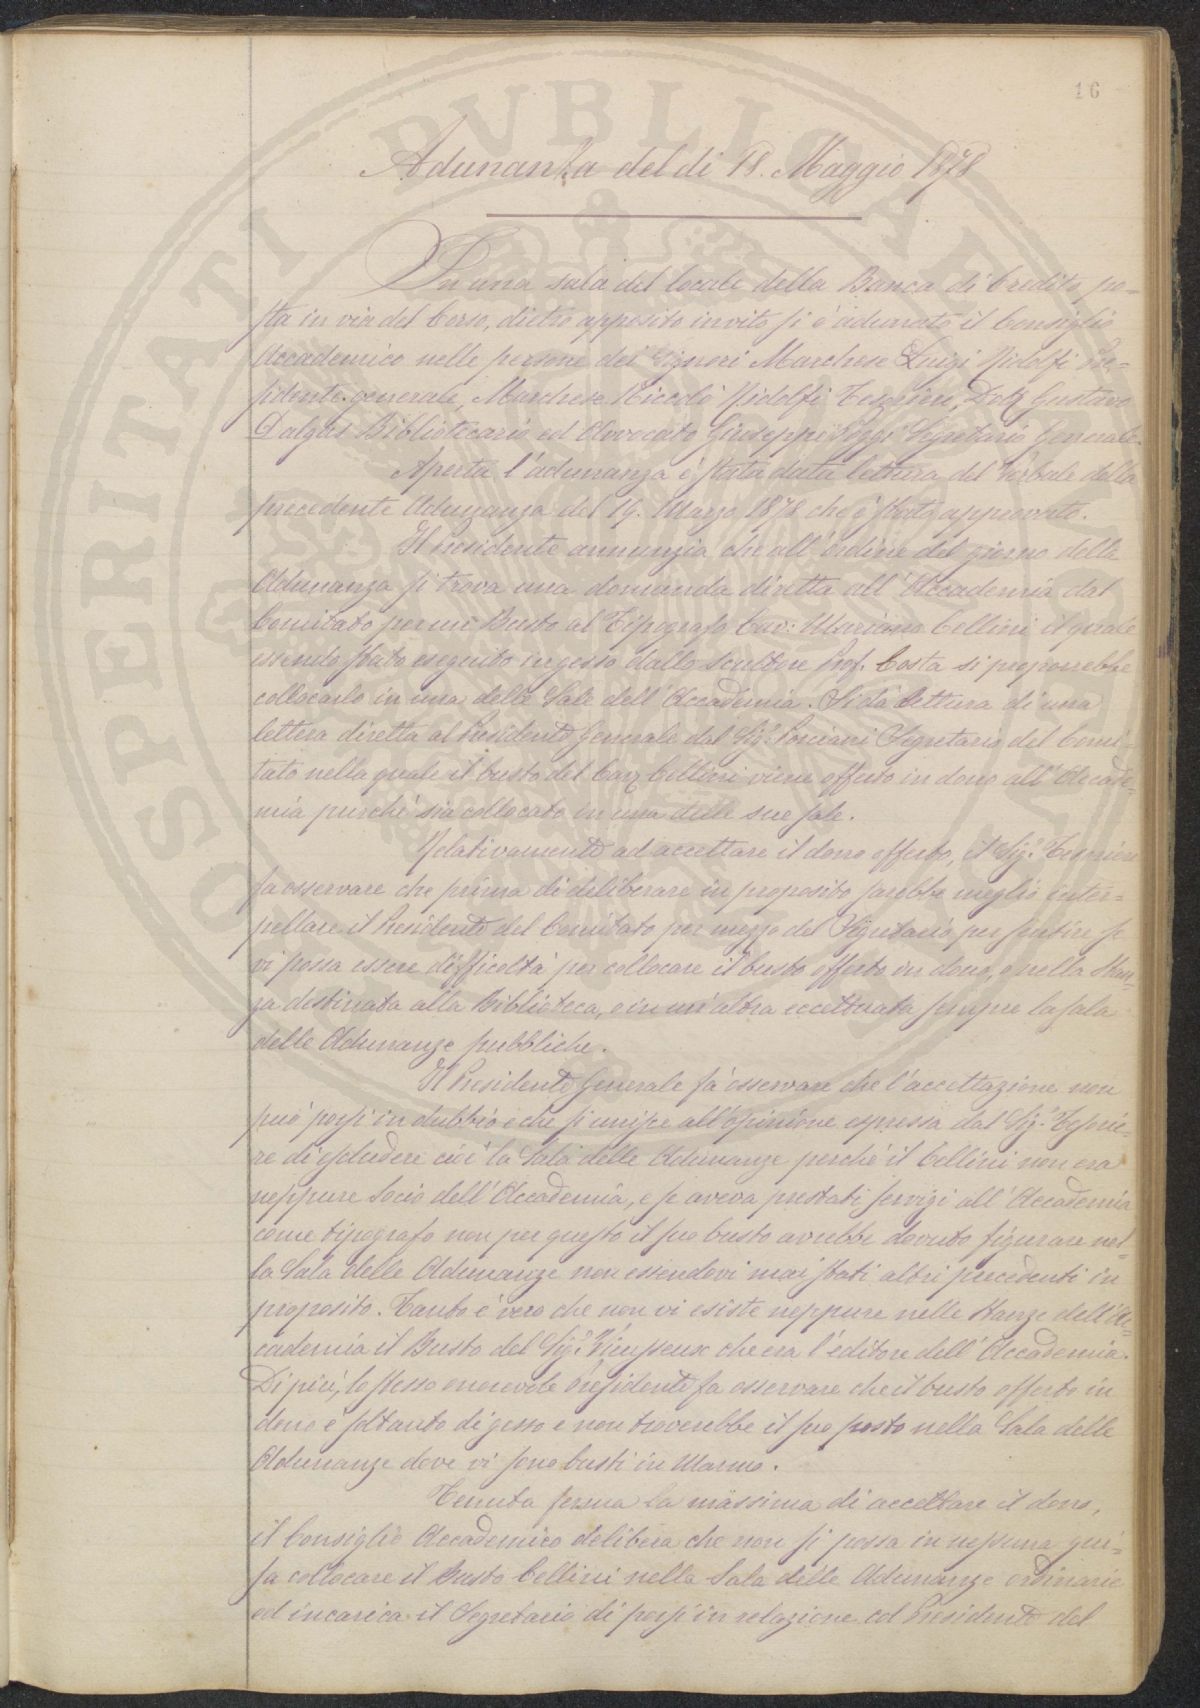 16
Adunanza del di 18. Maggio 1878
In una sala del locale della Banca di Credito po=
sta in via del Corso, dietro apposito invito si è adunato il Consiglio
Accademico nelle persone dei Signori Marchese Luigi Ridolfi Pre=
sidente generale, Marchese Niccolò Ridolfi Tesoriere, Dott Gustavo
Dalgas Bibliotecario ed Avvocato Giuseppe Poggi Segretario Generale.
Aperta l'adunanza è stata data lettura del Verbale della
precedente Adunanza del 19. Marzo 1878 che è stato approvato.
Il Presidente annunzia che all'ordine del giorno della
Adunanza si trova una domanda diretta all'Accademia dal
Comitato per un Busto al Tipografo Cav: Mariano Cellini il quale
essendo stato eseguito in gesso dallo scultore Prof. Costa si proporrebbe
collocarlo in una delle Sale dell'Accademia. Si dà lettura di una
lettera diretta al Presidente Generale dal Sig.r Ponciani Segretario del Comi=
tato nella quale il busto del Cav Cellini viene offerto in dono all'Accade=
mia purchè sia collocato in una delle sue sale.
Relativamente ad accettare il dono offerto, il Sig.r Tesoriere
fa osservare che prima di deliberare in proposito sarebbe meglio inter=
pellare il Presidente del Comitato per mezzo del Segretario per sentire se
vi possa essere difficoltà per collocare il busto offerto in dono, o nella Stan=
za destinata alla Biblioteca, o in un'altra eccettuata sempre la sala
delle Adunanze pubbliche.
Il Presidente Generale fa osservare che l'accettazione non
può porsi in dubbio e che si unisce all'opinione espressa dal Sig.r Tesorie=
re di escludere cioè la Sala delle Adunanze perchè il Cellini non era
neppure Socio dell'Accademia, e se aveva prestati servigi all'Accademia
come tipografo non per questo il suo busto avrebbe dovuto figurare nel=
la Sala delle Adunanze non essendovi mai stati altri precedenti in
proposito. Tanto è vero che non vi esiste neppure nelle Stanze dell'Ac=
cademia il Busto del Sig.r Vieusseux che era l'editore dell'Accademia.
Di più, lo stesso onorevole Presidente fa osservare che il busto offerto in
dono è soltanto di gesso e non troverebbe il suo posto nella Sala delle
Adunanze dove vi sono busti in Marmo.
Tenuta ferma la massima di accettare il dono,
il Consiglio Accademico delibera che non si possa in nessuna gui=
sa collocare il Busto Cellini nella Sala delle Adunanze ordinarie
ed incarica il Segretario di porsi in relazione col Presidente del
SPERITATI PVBLICAE